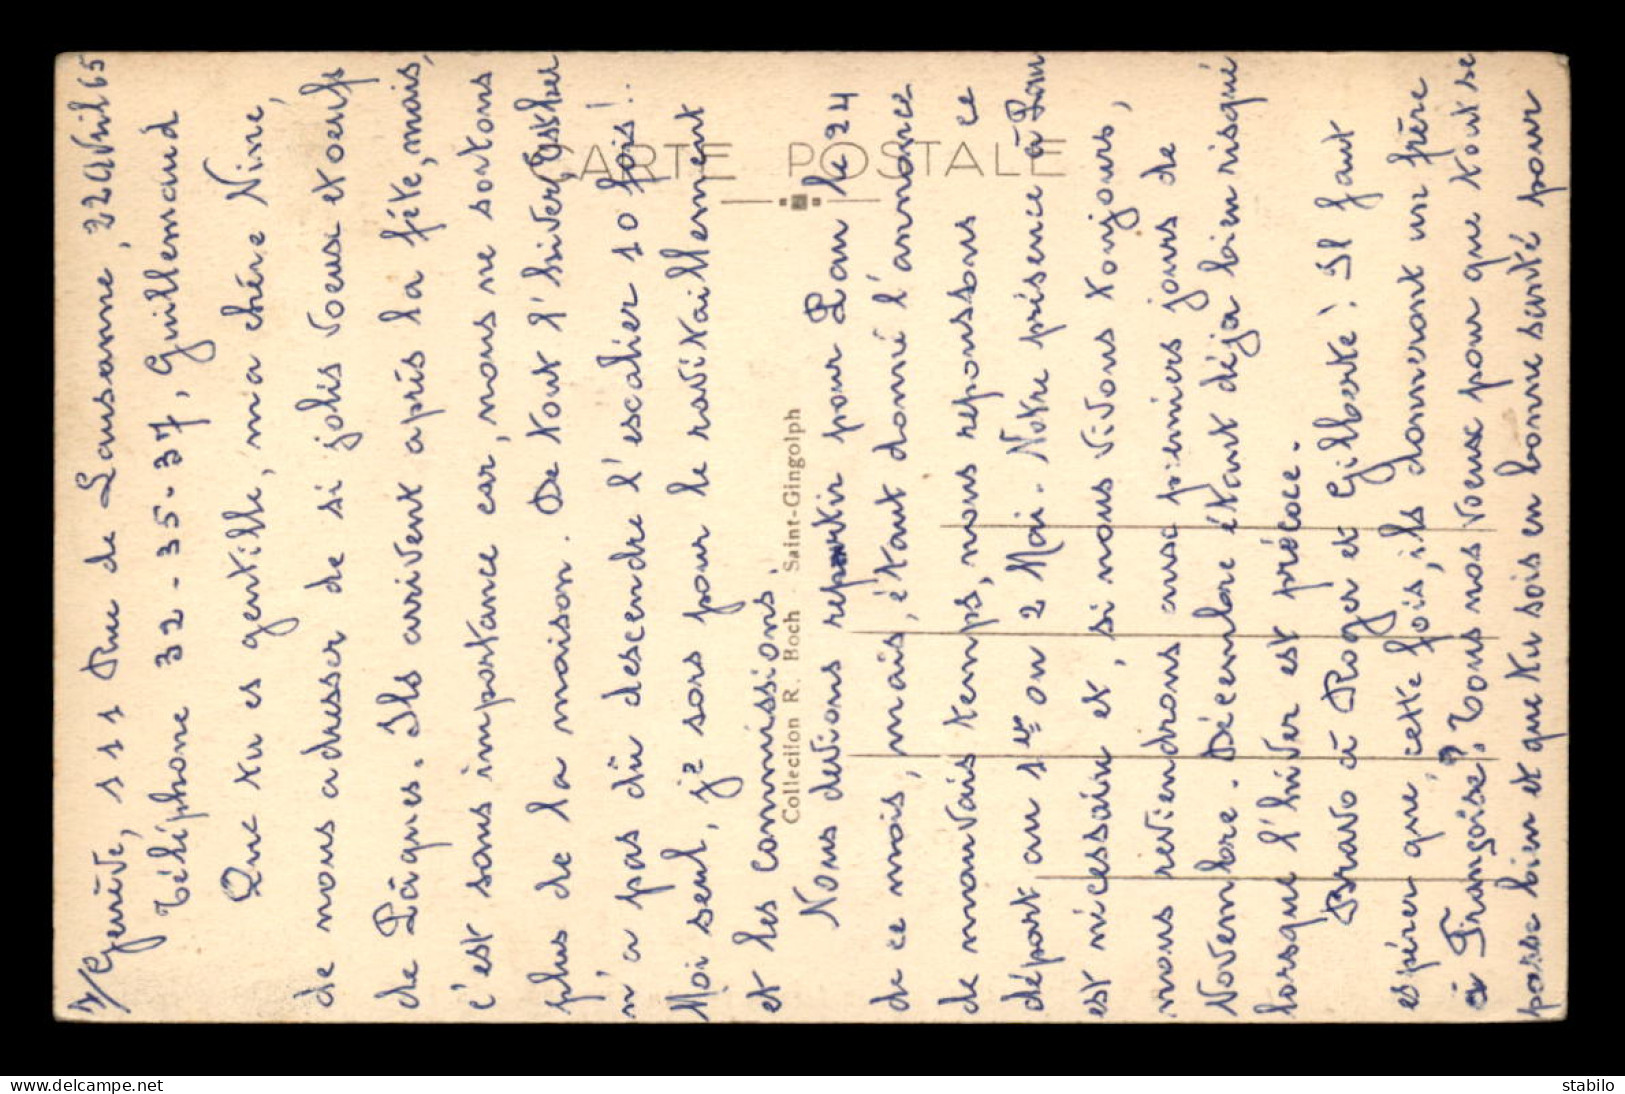 1/ Genève, 111 Rue de Lausanne, 22 Avril 65
Téléphone 32-35-37, Guillemaud
Que tu es gentille, ma chère Nine,
de nous adresser de si jolis voeux et oeufs
de Pâques. Ils arrivent après la fête, mais,
c'est sans importance car, nous ne sortons
plus de la maison. De tout l'hiver, Esther
n'a pas dû descendre l'escalier 10 fois!..
Moi seul, je sors pour le ravitaillement
et les commissions.
Nous devions repartir pour Pau le 24
de ce mois, mais, étant donné l'annonce
de mauvais temps, nous repoussons ce
départ au 1er ou 2 Mai. Notre présence à Pau
est nécessaire et, si nous vivons toujours,
nous reviendrons aux premiers jours de
Novembre. Décembre étant déja bien risqué
lorsque l'hiver est précoce.
Bravo à Roger et Gilberte! Il faut
espérer que, cette fois, ils donneront un frère
à Françoise? Tous nos voeux pour que tout se
passe bien et que tu sois en bonne santé pour
CARTE POSTALE
Collection R. Boch - Saint-Gingolph
delcampe.net
stabilo